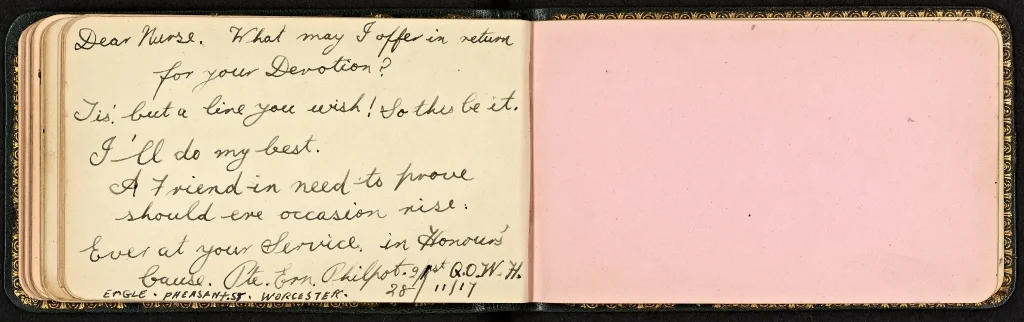 Dear Nurse. What may I offer in return
for your Devotion?
Tis' but a line you wish! So this be it.
I'll do my best.
A Friend in need to prove
should ere occasion rise.
Ever at your Service. in Honour's
Cause. Pte. Ern. Philpot. 21st Q.O.W.H.
EAGLE. PHEASANT. ST. WORCESTER. 28/11/17